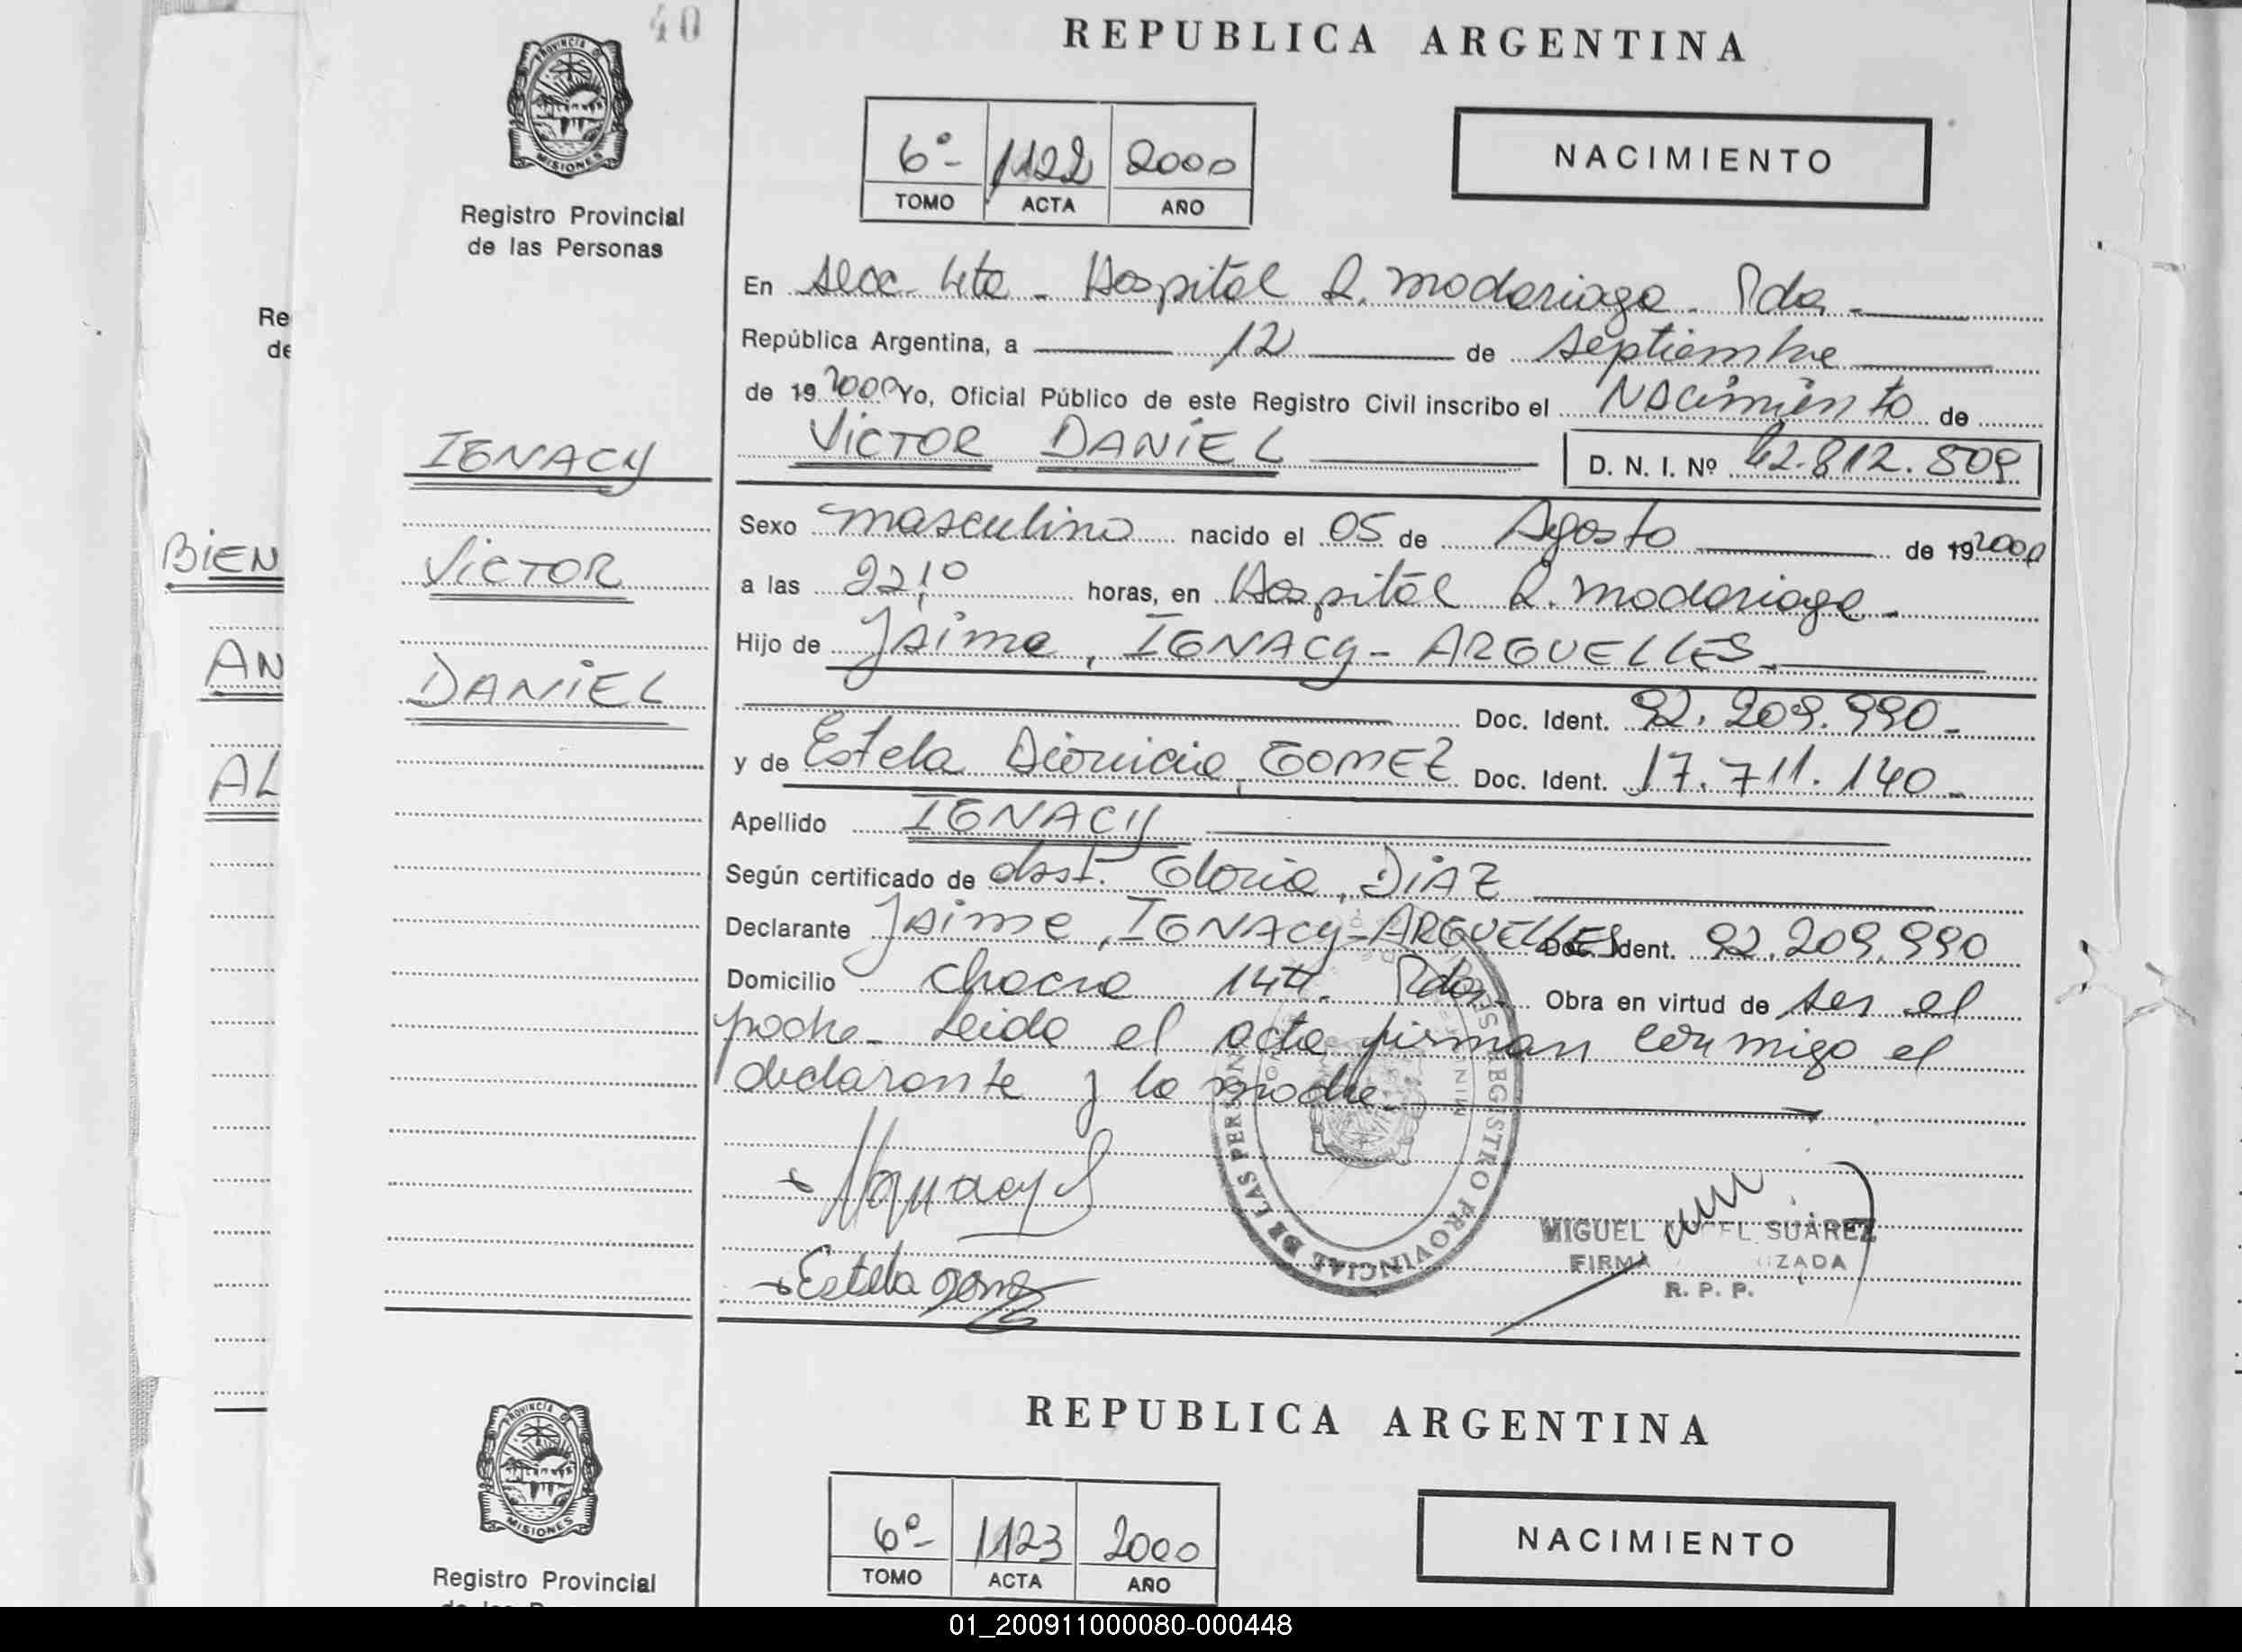 40
REPUBLICA ARGENTINA
PROVINCIA DE
MISIONES
Registro Provincial
de las Personas
6º- 1122 2000
TOMO ACTA AÑO
NACIMIENTO
En Secc. 4ta - Hospital R. Madariaga - Pdas -
República Argentina, a 12 de Septiembre
de 19 2000 Yo, Oficial Público de este Registro Civil inscribo el Nacimiento de
VICTOR DANIEL D. N. I. Nº 42.812.509
Sexo masculino nacido el 05 de Agosto de 19 2000
a las 22,10 horas, en Hospital R. Madariaga -
Hijo de Jaime, IGNACY - ARGUELLES -
Doc. Ident. 92.209.990 -
y de Estela Dionicia, GOMEZ Doc. Ident. 17.711.140 -
Apellido IGNACY
Según certificado de obst. Gloria, DIAZ
Declarante Jaime, IGNACY - ARGUELLES Doc. Ident. 92.209.990
Domicilio chacra 144. Pdas - Obra en virtud de ser el
padre - Leida el acta firman conmigo el
declarante y la madre -
Estela Gomez
REGISTRO PROVINCIAL DE LAS PERSONAS
MIGUEL SUÁREZ
FIRMA
R. P. P.
IGNACY
VICTOR
DANIEL
Re
de
BIEN
AN
AL
REPUBLICA ARGENTINA
PROVINCIA DE
MISIONES
Registro Provincial
6º- 1123 2000
TOMO ACTA AÑO
NACIMIENTO
01_200911000080-000448